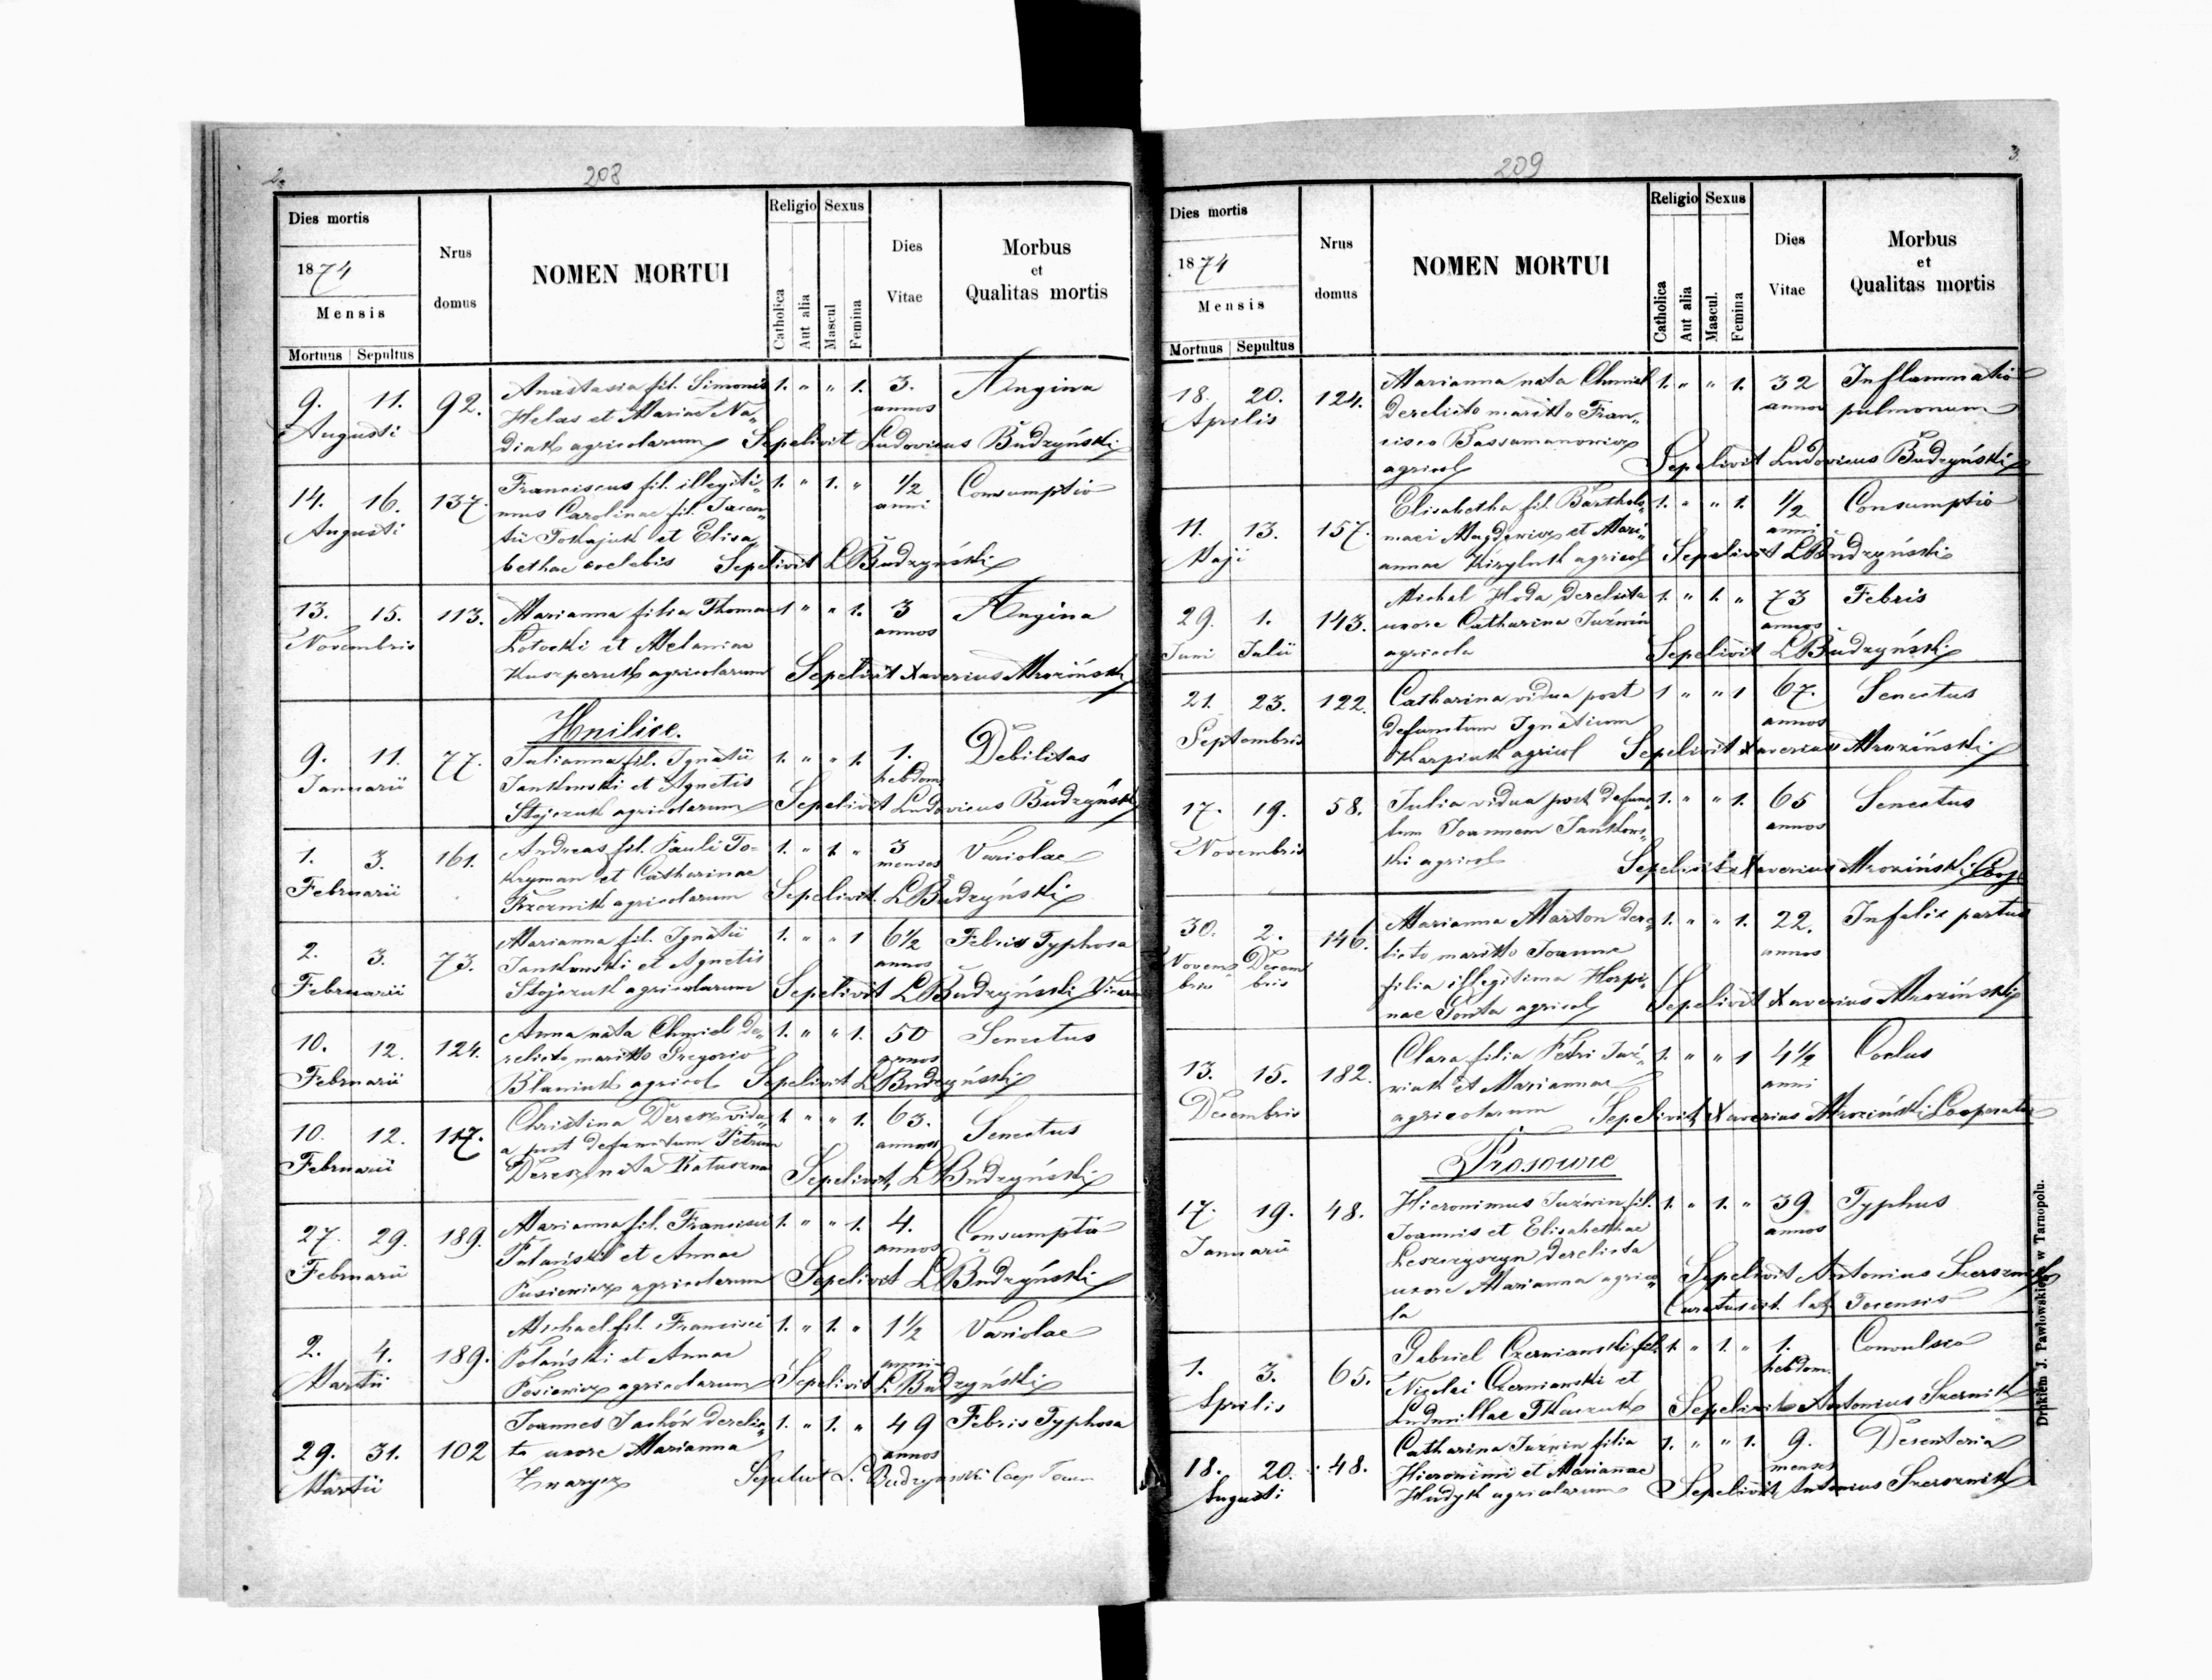 2.
208
Dies mortis
1874
Mensis
Mortuus Sepultus
Nrus domus
NOMEN MORTUI
Religio Sexus
Catholica Aut alia Mascul Femina
Dies Vitae
Morbus et Qualitas mortis
9. 11. 92. Anastasia fil. Simonis 1. " " 1. 3. Angina
Augusti Helas et Mariae Na„ annos
diuk agricolarum Sepelivit Ludovicus Budzyński
14. 16. 137. Franciscus fil. illegiti„ 1. " 1. " 1/2 Consumptio
Augusti mus Carolinae fil. Jacen„ anni
tii Tokajuk et Elisa„
bethae coelebis Sepelivit LBudzyński
13. 15. 113. Marianna filia Thomae 1 " " 1. 3 Angina
Novembris Lotocki et Melaniae annos
agricolarum Sepelivit Xaverius Mroziński
Hnilice.
9. 11. 77. Julianna fil. Ignatii 1. " " 1. 1. Debilitas
Januarii Jankowski et Agnetis hebdom.
Stojczuk agricolarum Sepelivit Ludovicus Budzyński
1. 3. 161. Andreas fil. Pauli To= 1. " 1. " 3 Variolae
Februarii kryman et Catharinae menses
agricolarum Sepelivit LBudzyński
2. 3. 73. Marianna fil. Ignatii 1. " " 1 6 1/2 Febris Typhosa
Februarii Jankowski et Agnetis annos
Stojczuk agricolarum Sepelivit LBudzyński
10. 12. 124. Anna nata Chmiel de„ 1. " " 1. 50 Senectus
Februarii relicto maritto Gregorio annos
Blaniuk agricol Sepelivit LBudzyński
10. 12. 117. Christina Deresz vidu„ 1. " " 1. 63. Senectus
Februarii a post defunctum Petrum annos
Deresz nata Sepelivit LBudzyński
27. 29. 189. Marianna fil. Francisci 1. " " 1. 4. Consumptio
Februarii Polański et Annae annos
agricolarum Sepelivit LBudzyński
2. 4. 189. Michael fil. Francisci 1. " 1. " 1 1/2 Variolae
Martii Polański et Annae anni
agricolarum Sepelivit LBudzyński
29. 31. 102 Joannes Jachów derelic„ 1. " 1. " 49 Febris Typhosa
Martii ta uxore Marianna annos
Zwarycz Sepelivit L. Budzynski Coop
209
3.
Dies mortis
1874
Mensis
Mortuus Sepultus
Nrus domus
NOMEN MORTUI
Religio Sexus
Catholica Aut alia Mascul. Femina
Dies Vitae
Morbus et Qualitas mortis
18. 20. 124. Marianna nata Chmiel 1. " " 1. 32 Inflammatio
Aprilis derelicto maritto Fran„ annos pulmonum
cisco
agricol Sepelivit Ludovicus Budzyński
11. 13. 157. Elisabetha fil. Bartholo„ 1. " " 1. 1/2 Consumptio
Maji maei et Mari„ anni
annae Kiryluk agricol Sepelivit LBudzyński
29. 1. 143. Michal Hoda derelicta 1. " 1. " 73 Febris
Juni Julii uxore Catharina Juźwin annos
agricola Sepelivit LBudzyński
21. 23. 122. Catharina vidua post 1 " " 1 67. Senectus
Septembris defunctum Ignatium annos
Karpiuk agricol Sepelivit Xaverius Mroziński
17. 19. 58. Julia vidua post defunc„ 1. " " 1. 65 Senectus
Novembris tum Joannem Jankows„ annos
ki agricol Sepelivit Xaverius Mroziński Coop
30. 2. 146. Marianna Marton dere„ 1. " " 1. 22. Infelix partus
Novem Decem licto maritto Joanne annos
bris bris filia illegitima Horpi„
nae agricol Sepelivit Xaverius Mroziński
13. 15. 182. Clara filia Petri Juź„ 1. " " 1 4 1/2
Decembris wiak et Mariannae anni
agricolarum Sepelivit Xaverius Mroziński Cooperator
Prosowce
17. 19. 48. Hieronimus Juźwin fil. 1. " 1. " 39 Typhus
Januarii Joannis et Elisabethae annos
Leszczyszyn derelicta
uxore Marianna agrico„ Sepelivit Antonius Szersznik
la Curatus rit. lat. Tocensis
1. 3. 65. Gabriel Czerniawski fil. 1. " 1. " 1. Convulsio
Aprilis Nicolai Czerniawski et hebdom.
Ludmillae Tkaczuk Sepelivit Antonius
18. 20. 48. Catharina Juźwin filia 1. " " 1. 9. Desenteria
Augusti Hieronimi et Mariannae menses
Hudyk agricolarum Sepelivit Antonius Szersznik
Drukiem J. Pawłowskiego w Tarnopolu.